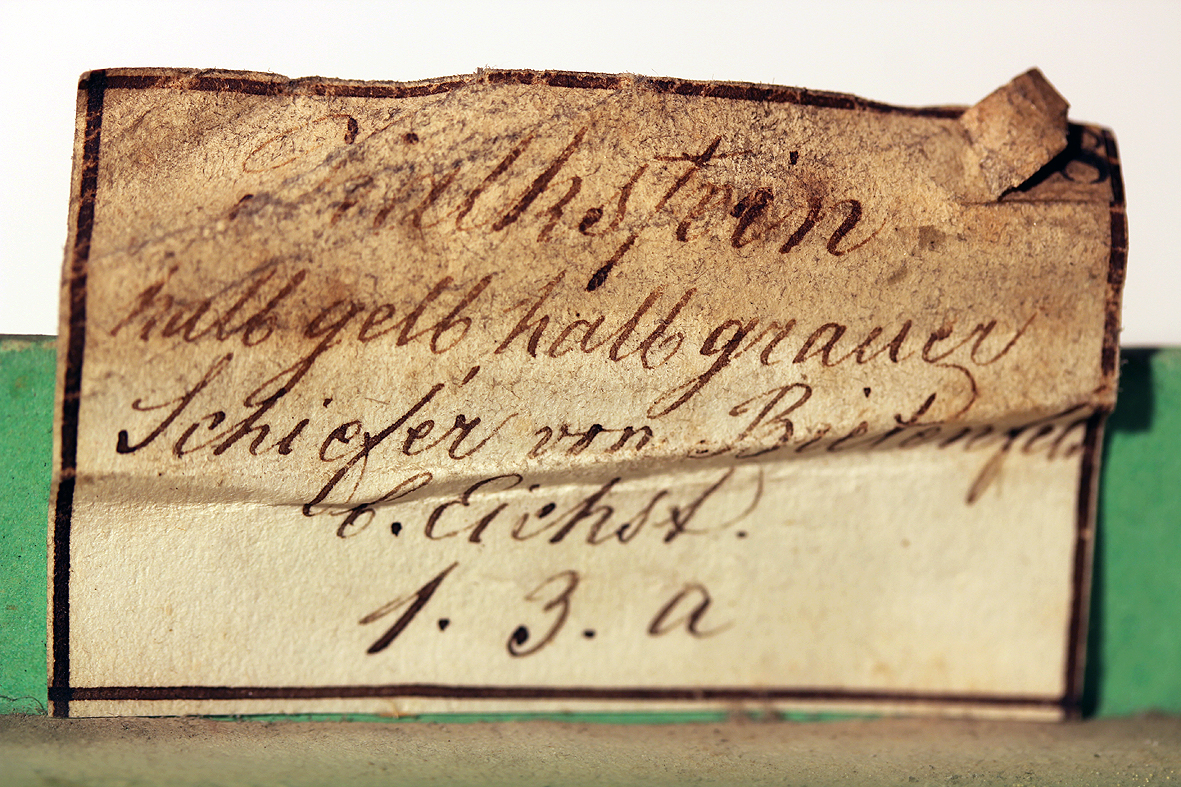 halb gelb halb grauer
Schiefer von
b. Eichst.
1. 3. a